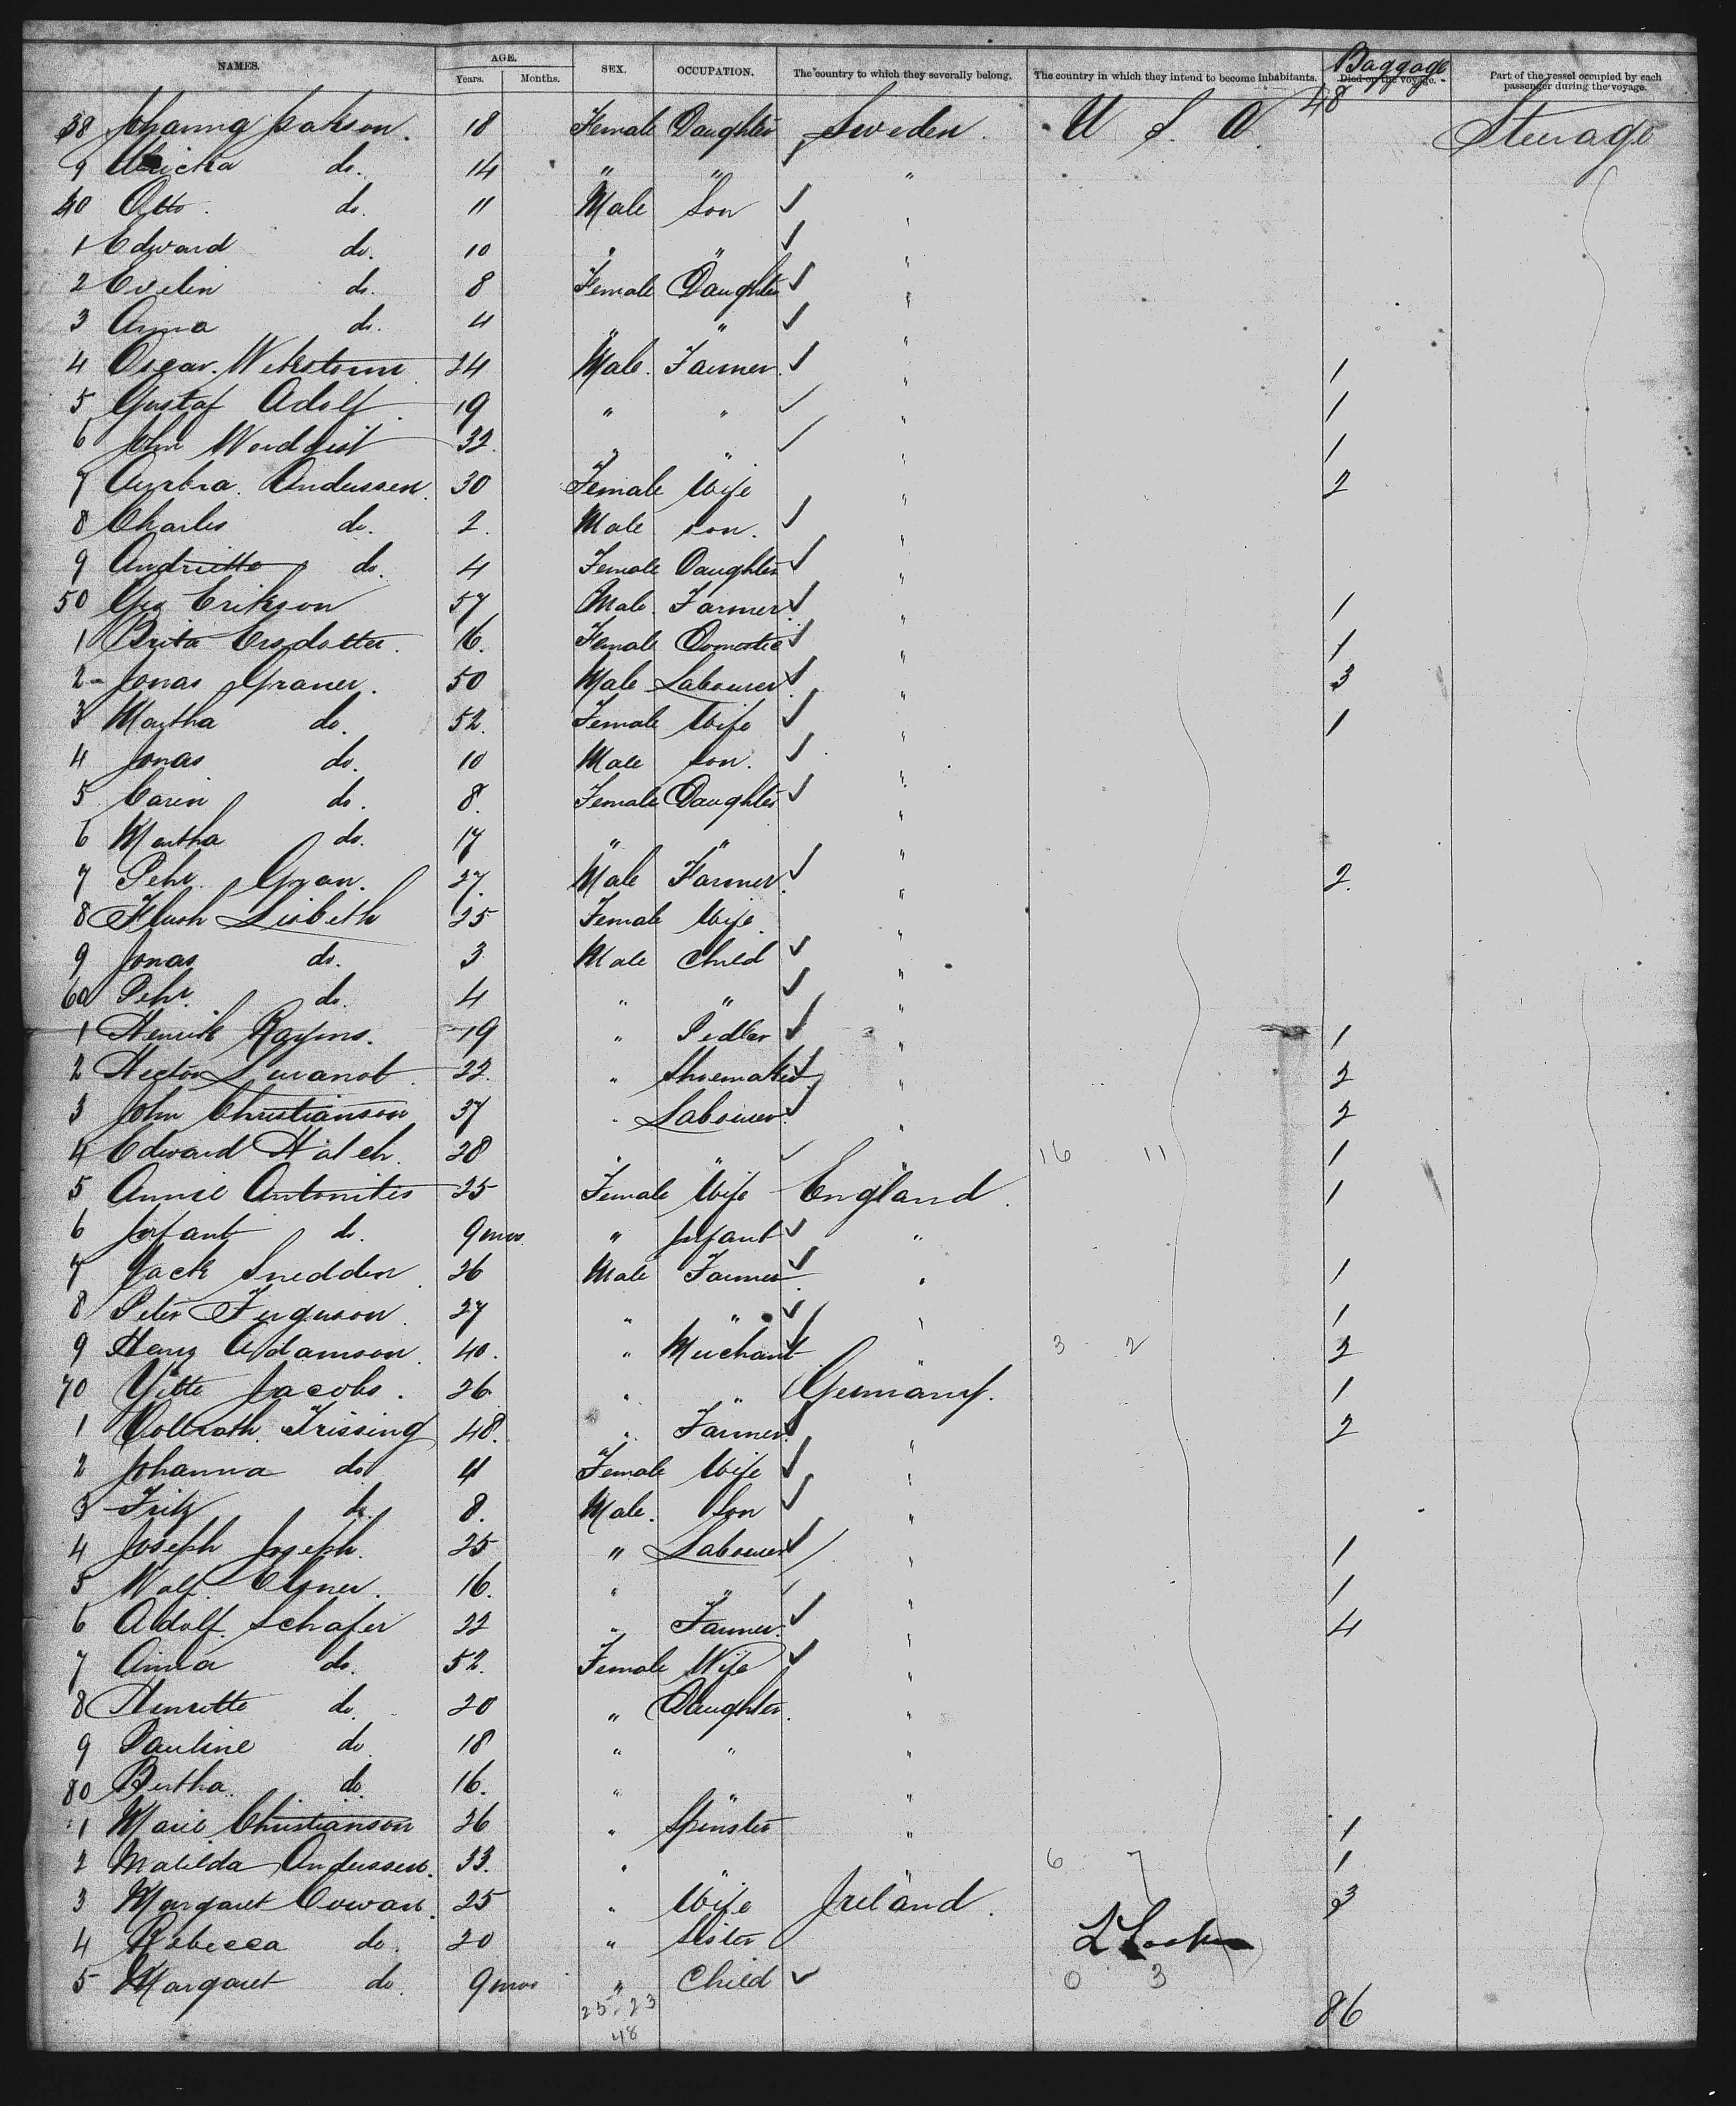 NAMES. AGE. Years. Months. SEX. OCCUPATION. The country to which they severally belong. The country in which they intend to become inhabitants. Baggage Died on the voyage. Part of the vessel occupied by each passenger during the voyage.
38 Johanna Jakson. 18 Female Daughter Sweden. U S. A. 48 Steerage
9 Ulricka do. 14 " " "
40 Otto. do. 11 Male Son "
1 Edward do. 10 " " "
2 Evelin do. 8 Female Daughter "
3 Anna do. 4 " " "
4 Oscar. Wikstrom 24 Male. Farmer. " 1
5 Gustaf Adolf. 19 " " " 1
6 John Wordquist 32. " " " 1
7 Andersson. 30 Female Wife " 2
8 Charles do. 2. Male son. "
9 Andriette do. 4 Female Daughter "
50 Geo Erikson 57 Male Farmer. " 1
1 Brita Ersdotter. 16. Female Domestic " 1
2 - Jonas Graner. 50 Male Labourer. " 3
3 Martha do. 52. Female Wife " 1
4 Jonas do. 10 Male Son. "
5 Carin do. 8. Female Daughter "
6 Martha do. 17 " " "
7 Pehr. Gran. 27. Male Farmer. " 2.
8 Lisbeth 25 Female Wife. "
9 Jonas do. 3 Male Child "
60 Pehr. do. 4 " " "
1 Henrik 19 " Pedler " 1
2 Hector 22. " Shoemaker. " 2
3 John Christianson 37 " Labourer. " 2
4 Edward Hatch. 28 " " " 16 11 1
5 Annie Antonites 25 Female Wife England. 1
6 Infant do. 9 mos. " Infant "
7 Jack Snedden. 26 Male Farmer " 1
8 Peter Ferguson. 27 " " " 1
9 Henry Adamson. 40. " Merchant " 3 2 2
70 Yitte Jacobs. 26 " " Germany. 1
1 Vollrath. Trissing 48. " Farmer. " 2
2 Johanna do. 41 Female Wife "
3 Fritz do. 8. Male. Son "
4 Joseph Joseph. 25 " Labourer " 1
5 Wolf Elsner. 16. " " " 1
6 Adolf. Schafer 22 " Farmer. " 4
7 Anna do. 52. Female Wife "
8 Henrette do. 20 " Daughter. "
9 Pauline do. 18 " " "
80 Bertha. do. 16. " " "
1 Marie Christianson 26 " Spinster " 1
2 Matilda Anderssen. 33. " " " 6 7 1
3 Margaret Cowan. 25 " Wife Ireland. 3
4 Rebecca do. 20 " Sister
5 Margaret do. 9 mos " Child 0 3
25. 23 86
48